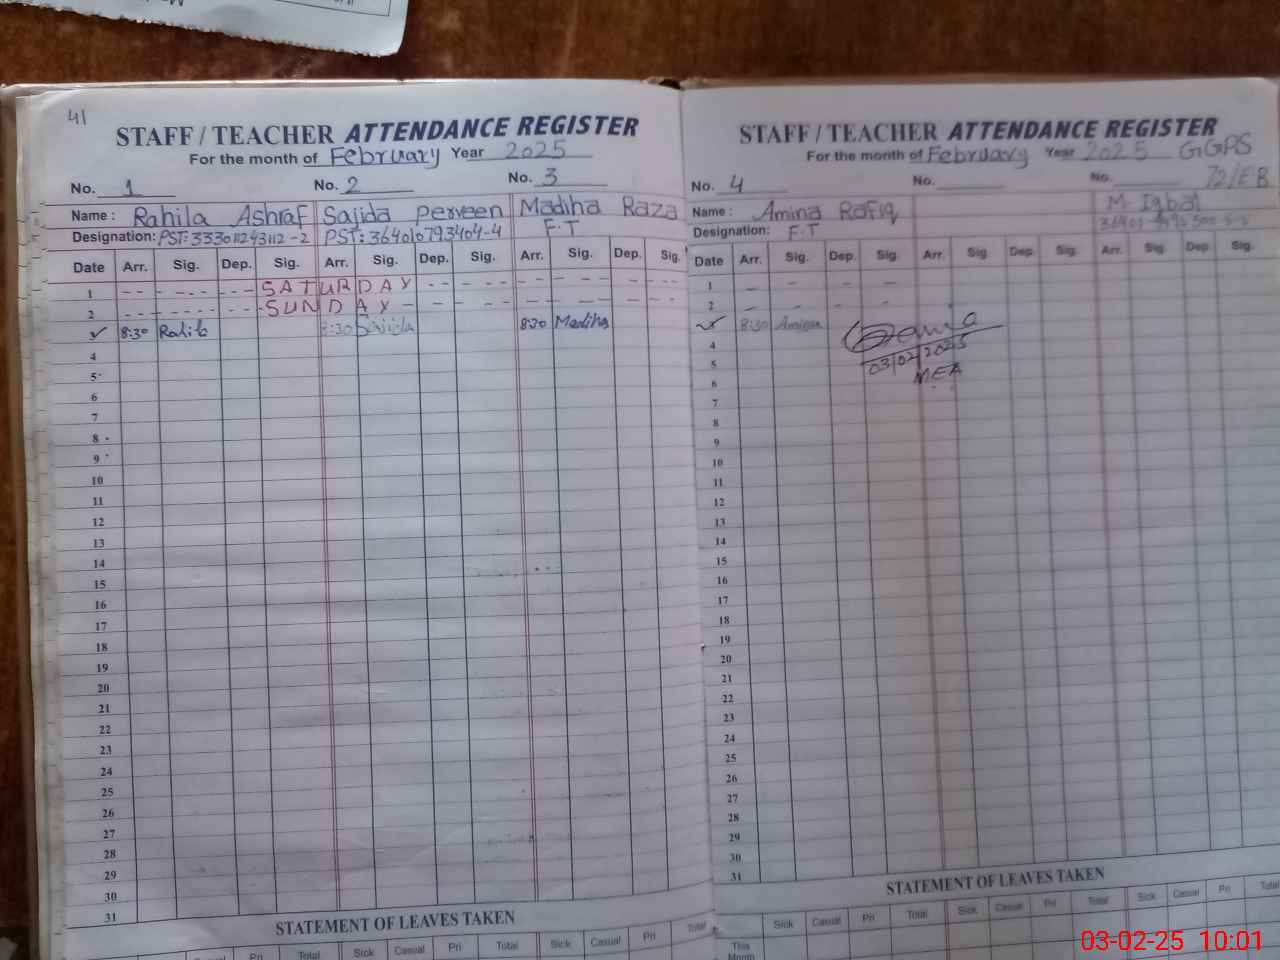 41
STAFF / TEACHER ATTENDANCE REGISTER
For the month of February Year 2025
No. 1 No. 2 No. 3
Name : Rahila Ashraf Sajida Perveen Madiha Raza
Designation: PST: 333011243112-2 PST: 364010793404-4 F.T
Date Arr. Sig. Dep. Sig. Arr. Sig. Dep. Sig. Arr. Sig. Dep. Sig.
1 SATURDAY
2 SUNDAY
8:30 Rahila 8:30 Sajida 8:30 Madiha
4
5
6
7
8
9
10
11
12
13
14
15
16
17
18
19
20
21
22
23
24
25
26
27
28
29
30
31
STATEMENT OF LEAVES TAKEN
Casual Pri Total Sick Casual Pri Total Sick Casual Pri Total
STAFF / TEACHER ATTENDANCE REGISTER
For the month of February Year 2025 GGPS
No. 4 No. No. 72/EB
Name : Amina Rafiq M. Iqbal
Designation: F.T
Date Arr. Sig. Dep. Sig. Arr. Sig. Dep. Sig. Arr. Sig. Dep. Sig.
1
2
8:30 Amina
4 03/02/2025
5 MEA
6
7
8
9
10
11
12
13
14
15
16
17
18
19
20
21
22
23
24
25
26
27
28
29
30
31
STATEMENT OF LEAVES TAKEN
Sick Casual Pri Total Sick Casual Pri Total Sick Casual Pri Total
This
Month
03-02-25 10:01